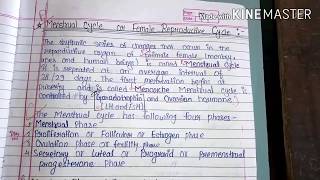 Made with KINEMASTER
Menstrual Cycle or Female Reproductive Cycle :-
The rhythmic series of changes that occur in the
reproductive organs of female (monkey,
apes and human beings) is called Menstrual Cycle
It is repeated at an average interval of
28/29 days. The first menstruation begins at
puberty and is called Menarche Menstrual cycle is
controlled by Gonadotrophin and Ovarian hormone
(LH and FSH)
The Menstrual cycle has following four phases-
Menstrual Phase
Proliferation or Follicular or Estrogen phase
3 Ovulation phase or fertility phase
4 Secretory or Luteal or Progravid or premenstrual
progesterone phase